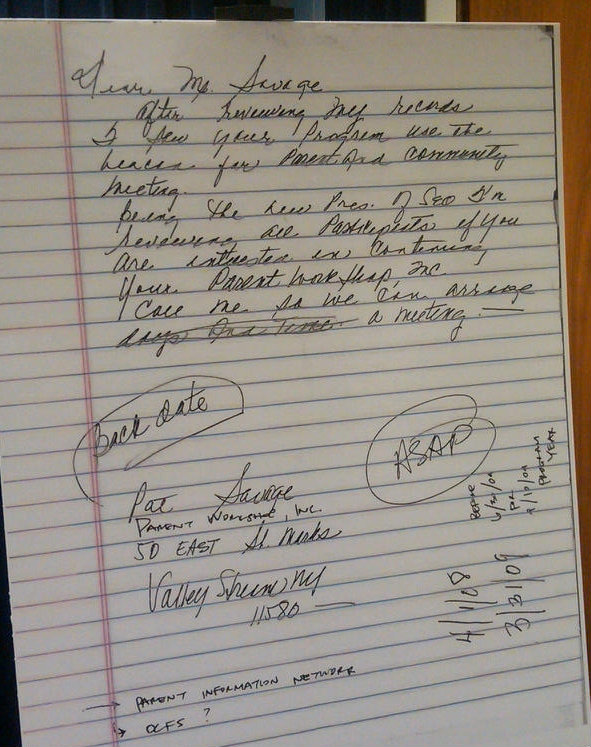 Dear Ms. Savage
After Reviewing my records
I see your Program use the
beacon for Parent And Community
Meeting.
Being the new Pres. of SCO I'm
Reviewing all Participants if you
are intrested in Contining
Your Parent Work Shop, Inc
Call me so we can arrange
days And Time a meeting. —
Back Date
ASAP
Pat Savage
PARENT WORKSHOP, INC.
50 EAST St. Marks
Valley Stream NY
11580 —
4/1/08
3/31/09
BEFORE
PROGRAM
YEAR
→ PARENT INFORMATION NETWORK
→ OCFS ?